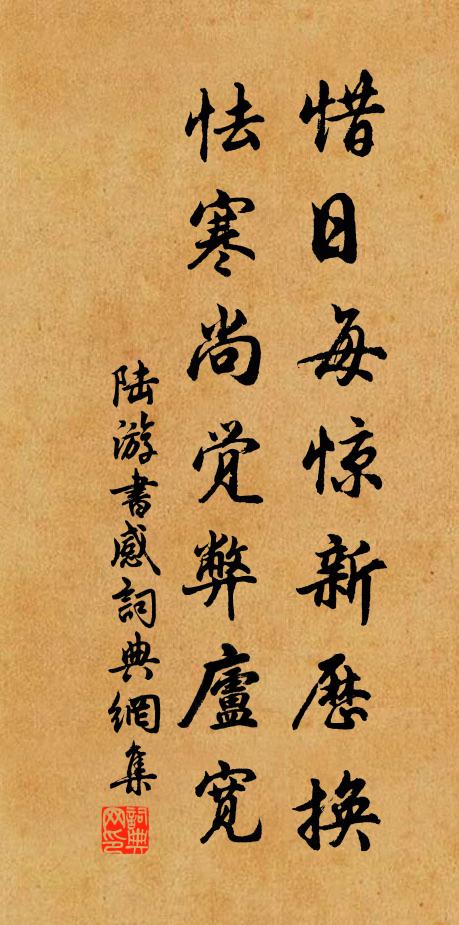 惜日每惊新历换
怯寒尚觉弊廬寬
陆游書感詞典網集
詞典網印